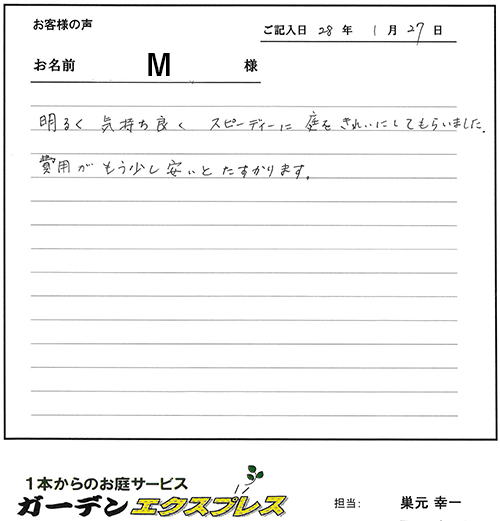 お客様の声
ご記入日 28 年 1 月 27 日
お名前 M 様
明るく 気持ち良く スピーディーに 庭を きれいにしてもらいました.
費用が もう少し 安いと たすかります。
1本からのお庭サービス
ガーデン エクスプレス
担当: 巣元 幸一